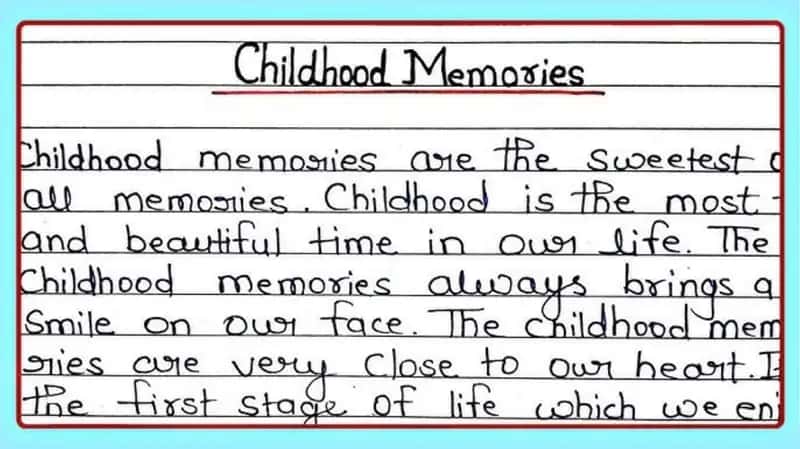 Childhood Memories
Childhood memories are the sweetest
all memories. Childhood is the most
and beautiful time in our life. The
Childhood memories always brings a
Smile on our face. The childhood mem
ries are very close to our heart.
the first stage of life which we